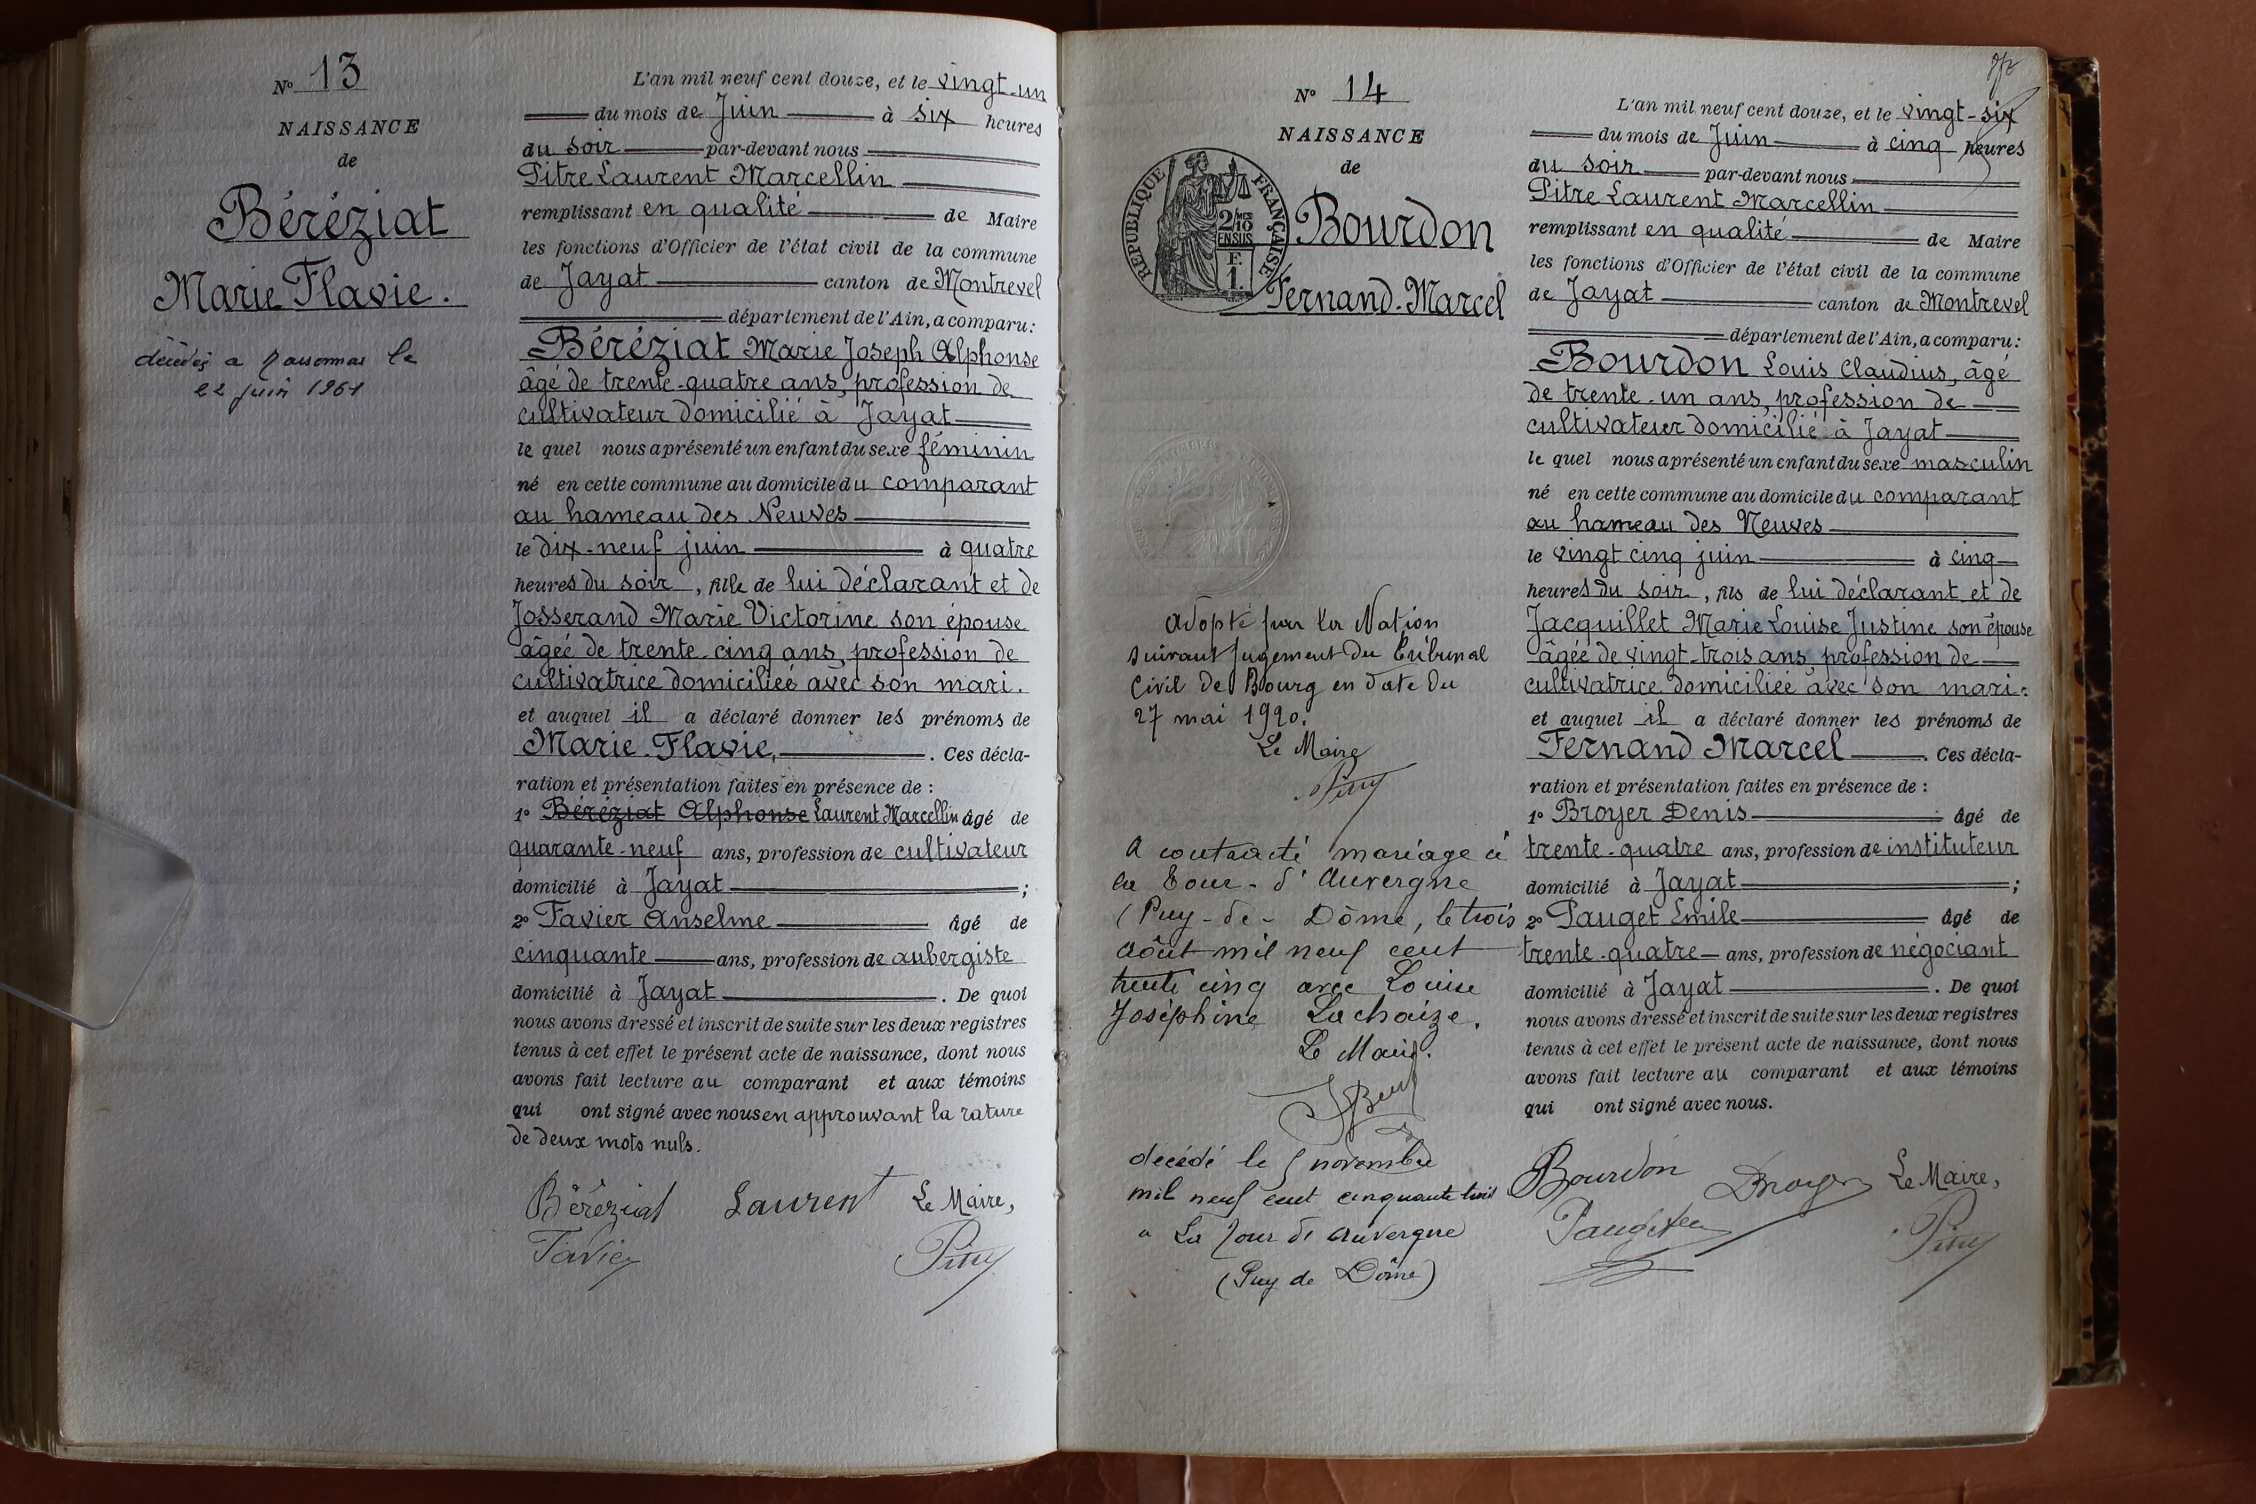 N° 13
NAISSANCE
de
Béréziat
Marie Flavie.
décédée a le
22 juin 1961
L'an mil neuf cent douze, et le vingt-un
du mois de Juin à six heures
du soir par-devant nous
Pitre Laurent Marcellin
remplissant en qualité de Maire
les fonctions d'Officier de l'état civil de la commune
de Jayat canton de Montrevel
département de l'Ain, a comparu:
Béréziat Marie Joseph Alphonse
âgé de trente-quatre ans, profession de
cultivateur domicilié à Jayat
le quel nous a présenté un enfant du sexe féminin
né en cette commune au domicile du comparant
au hameau des Neuves
le dix-neuf juin à quatre
heures du soir, fille de lui déclarant et de
Josserand Marie Victorine son épouse
âgée de trente-cinq ans, profession de
cultivatrice domiciliée avec son mari.
et auquel il a déclaré donner les prénoms de
Marie-Flavie, . Ces décla-
ration et présentation faites en présence de :
1° Béréziat Alphonse Laurent Marcellin âgé de
quarante-neuf ans, profession de cultivateur
domicilié à Jayat ;
2° Favier Anselme âgé de
cinquante ans, profession de aubergiste
domicilié à Jayat . De quoi
nous avons dressé et inscrit de suite sur les deux registres
tenus à cet effet le présent acte de naissance, dont nous
avons fait lecture au comparant et aux témoins
qui ont signé avec nous en approuvant la rature
de deux mots nuls.
Béréziat Laurent Le Maire,
Favier Pitre
N° 14
NAISSANCE
de
RÉPUBLIQUE FRANÇAISE
2/10 MES
EN SUS
F.
1.
Bourdon
Fernand-Marcel
Adopté par la Nation
suivant jugement du Tribunal
Civil de Bourg en date du
27 mai 1920.
Le Maire
Pitre
A contracté mariage à
la Tour-d'Auvergne
(Puy-de-Dôme, le trois
août mil neuf cent
trente cinq avec Louise
Joséphine Lachaize.
Le Maire.
décédé le novembre
mil neuf cent cinquante trois
a La Tour d'Auvergne
(Puy de Dôme)
L'an mil neuf cent douze, et le vingt-six
du mois de Juin à cinq heures
du soir par-devant nous
Pitre Laurent Marcellin
remplissant en qualité de Maire
les fonctions d'Officier de l'état civil de la commune
de Jayat canton de Montrevel
département de l'Ain, a comparu:
Bourdon Louis Claudius, âgé
de trente-un ans, profession de
cultivateur domicilié à Jayat
le quel nous a présenté un enfant du sexe masculin
né en cette commune au domicile du comparant
au hameau des Neuves
le vingt cinq juin à cinq
heures du soir, fils de lui déclarant et de
Jacquillet Marie Louise Justine son épouse
âgée de vingt-trois ans, profession de
cultivatrice domiciliée avec son mari.
et auquel il a déclaré donner les prénoms de
Fernand Marcel . Ces décla-
ration et présentation faites en présence de :
1° Broyer Denis âgé de
trente-quatre ans, profession de instituteur
domicilié à Jayat ;
2° Pauget Emile âgé de
trente-quatre ans, profession de négociant
domicilié à Jayat . De quoi
nous avons dressé et inscrit de suite sur les deux registres
tenus à cet effet le présent acte de naissance, dont nous
avons fait lecture au comparant et aux témoins
qui ont signé avec nous.
Bourdon DBroyer Le Maire,
Pauget Pitre